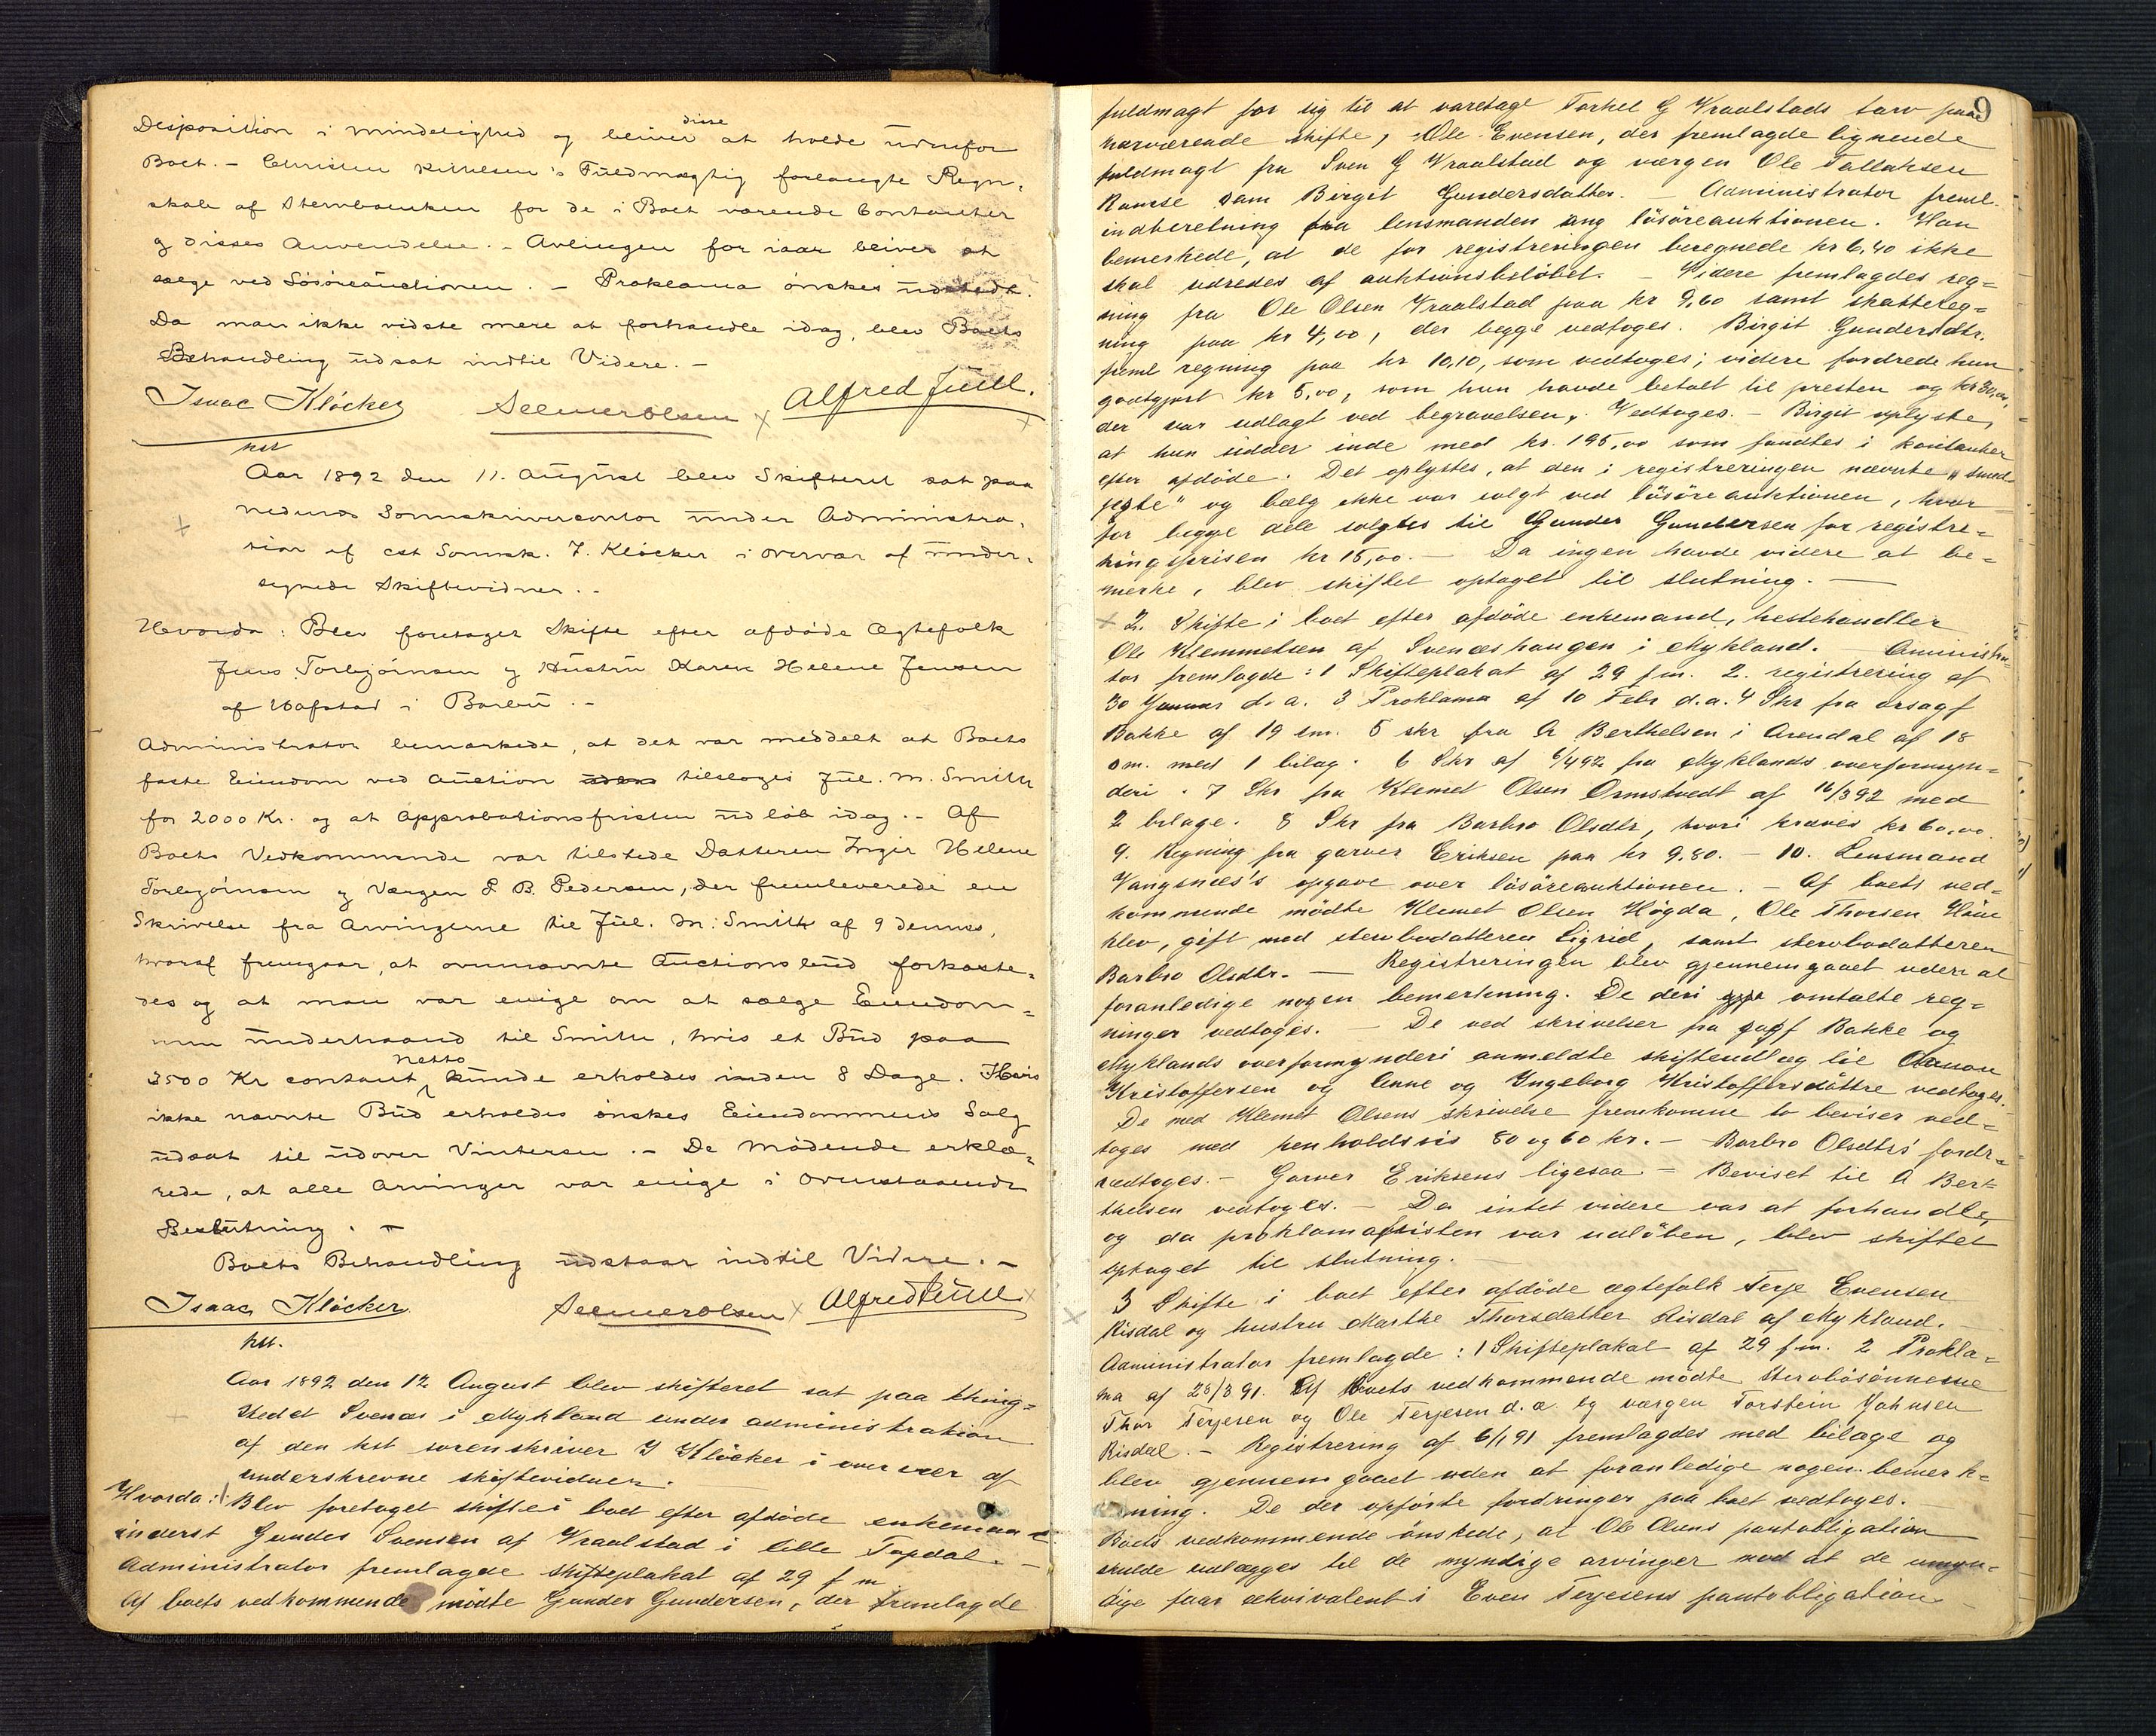 Disposition i Mindelighed og bliver disse at holde udenfor
Boet. – Christen Kittelsen's Fuldmægtig forlangte Regn-
skab af Sterboenken for de i Boet værende Contanter
og disses Anvendelse. – Avlingen for iaar bliver at
sælge ved Løsøreauctionen. – Proklama ønskes udstedt.
Da man ikke vidste mere at forhandle idag, blev Boets
Behandling udsat indtil Videre. –
Isaac Kløcker Selmer Olsen x Alfred Juell. x
kst
Aar 1892 den 11. August blev Skifteret sat paa
Nedenes Sorenskrivercontor under Administra-
tion af cst Sorensk. I. Kløcker i Overvær af under-
tegnede Skiftevidner. –
Hvorda: Blev foretaget Skifte efter afdøde Ægtefolk
Jens Torbjørnsen og Hustru Karen Helene Jensen
af Vafstad i Barbu. –
Administrator bemærkede, at det var meddelt at Boets
faste Eiendom ved Auction tilsloges Jul. M. Smith
for 2000 Kr. og at Approbationsfristen udløb idag. – Af
Boets Vedkommende var tilstede Datteren Inger Helene
Torbjørnsen og Værgen P. B. Pedersen, der fremleverede en
Skrivelse fra Arvingerne til Jul. M. Smith af 9 dennes,
hvoraf fremgaar, at ovennævnte Auctionsbud forkaste-
des og at man var enige om at sælge Eiendom-
men underhaand til Smith, hvis et Bud paa
3500 Kr contant netto kunde erholdes inden 8 Dage. Hvis
ikke nævnte Bud erholdes ønskes Eiendommens Salg
udsat til udover Vinteren. – De Mødende erklæ-
rede, at alle Arvinger var enige i Ovenstaaende
Beslutning. –
Boets Behandling udstaar indtil Videre. –
Isaac Kløcker Selmer Olsen x Alfred Juell x
kst.
Aar 1892 den 12 August blev skifteret sat paa thing-
stedet Svenæs i Mykland under administration
af den kst sorenskriver I Kløcker i overvær af
underskrevne skiftevidner.
Hvorda: 1 Blev foretaget skifte i boet efter afdøde enkemand
inderst Gunder Svensen af Vraalstad i lille Topdal. –
Administrator fremlagde skifteplakat af 29 f m
Af boets vedkommende mødte Gunder Gundersen, der fremlagde
9
fuldmagt for sig til at varetage Torkel G Vraalstads tarv paa
nærværende skifte, Ole Evensen, der fremlagde lignende
fuldmagt fra Sven G Vraalstad og værgen Ole Tallaksen
Ramse sam Birgit Gundersdatter. – Administrator freml.
indberetning fra lensmanden ang løsøreauktionen. Han
bemerkede, at de for registreringen beregnede kr 6,40 ikke
skal udredes af auktionsbeløbet. – Videre fremlagdes reg-
ning fra Ole Olsen Vraalstad paa kr 9,60 samt skattereg-
ning paa kr 4,00, der begge vedtoges. Birgit Gundersdtr.
freml regning paa kr 10,10, som vedtoges; videre fordrede hun
godtgjort kr 5,00, som hun havde betalt til presten og kr 30,00,
der var udlagt ved begravelsen. Vedtoges. – Birgit oplyste,
at hun sidder inde med kr. 195,00 som fandtes i kontanter
efter afdøde. Det oplystes, at den i registreringen nævnte "smed-
jegte" og bælg ikke var solgt ved løsøreauktionen, hvor
for begge dele solgtes til Gunder Gundersen for registre-
ringsprisen kr 15,00. – Da ingen havde videre at be-
merke, blev skiftet optaget til slutning. –
x 2. Skifte i boet efter afdøde enkemand, hestehandler
Ole Klemmetsen af Svenæshaugen i Mykland. – Administra-
tor fremlagde: 1 Skifteplakat af 29 f.m. 2. registrering af
30 Januar d.a. 3 Proklama af 10 Febr d.a. 4 Skr fra orsagf
Bakke af 19 em. 5 skr fra A Berthelsen i Arendal af 18
s m. med 1 bilag. 6 Skr af 6/4 92 fra Myklands overformyn-
deri. 7 Skr fra Klemet Olsen Ormstvedt af 16/3 92 med
2 bilage. 8 Skr fra Barbro Olsdtr, hvori kræves kr 60,00.
9. Regning fra garver Eriksen paa kr 9,80. – 10. Lensmand
Vangsnæs's opgave over løsøreauktionen. – Af boets ved-
kommende mødte Klemet Olsen Høgda, Ole Thorsen
klev, gift med sterbodatteren Sigrid, samt sterbodatteren
Barbro Olsdtr. – Registreringen blev gjennemgaaet uden at
foranledige nogen bemerkning. De deri omtalte reg-
ninger vedtoges. – De ved skrivelser fra sagf Bakke og
Myklands overformynderi anmeldte skifteudlæg til
Kristoffersen og Anne og Ingeborg Kristoffersdøttre vedtoges.
De med Klemet Olsens skrivelse fremkomne to beviser ved-
toges med henholdsvis 80 og 60 kr. – Barbro Olsdtrs fordr-
vedtoges. – Garver Eriksens ligesaa – Beviset til A Ber-
thelsen vedtoges. – Da intet videre var at forhandle,
og da proklamafristen var udløben, blev skiftet
optaget til slutning. –
x 3 Skifte i boet efter afdøde ægtefolk Terje Evensen
Risdal og hustru Marthe Thorsdatter Risdal af Mykland. –
Administrator fremlagde: 1 Skifteplakat af 29 f.m. 2 Prokla-
ma af 28/3 91. Af boets vedkommende mødte sterbosønnerne
Thor Terjesen og Ole Terjesen d.æ og værgen Torstein Johnsen
Risdal. – Registrering af 6/1 91 fremlagdes med bilage og
blev gjennemgaaet uden at foranledige nogen bemerk-
ning. De der opførte fordringer paa boet vedtoges. –
Boets vedkommende ønskede, at Ole Olsens pantobligation
skulde udlægges til de myndige arvinger mod at de umyn-
dige faar ækvivalent i Even Terjesens pantobligation. –